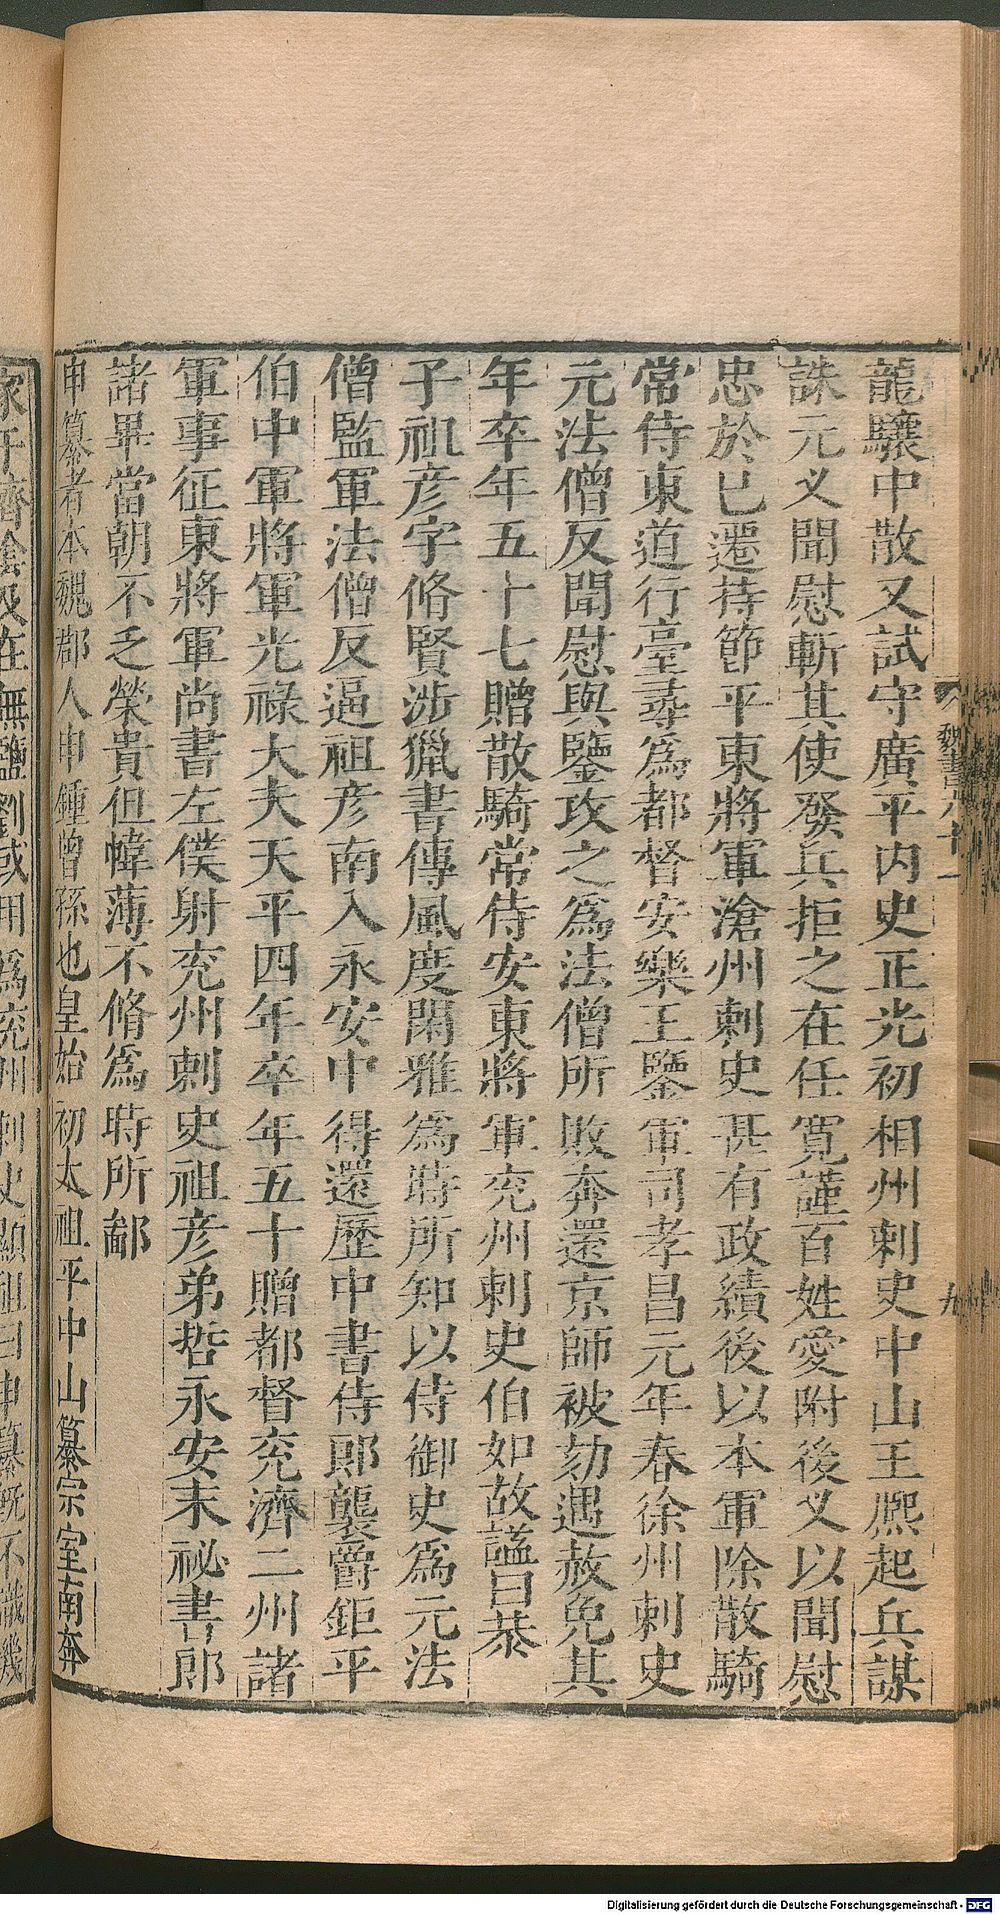 龍驤中散又試守廣平内史正光初相州刺史中山王熈起兵謀
誅元义聞慰斬其使發兵拒之在任寛謹百姓愛附後义以聞慰
忠於已遷持節平東將軍滄州刺史甚有政績後以本軍除散騎
常侍東道行臺尋爲都督安樂王鑒軍司孝昌元年春徐州刺史
元法僧反聞慰與鑒攻之爲法僧所敗奔還京師被劾遇赦免其
年卒年五十七贈散騎常侍安東將軍兖州刺史伯如故謚曰恭
子祖彦字脩賢涉獵書傳風度閑雅爲時所知以侍御史爲元法
僧監軍法僧反逼祖彦南入永安中得還歷中書侍郎襲爵鉅平
伯中軍將軍光禄大夫天平四年卒年五十贈都督兖濟二州諸
軍事征東將軍尚書左僕射兖州刺史祖彦弟哲永安末祕書郎
諸畢當朝不乏榮貴但幃薄不脩爲時所鄙
申纂者本魏郡人申鍾曾孫也皇始初太祖平中山纂宗室南奔
家于濟陰及在無鹽劉彧用爲兖州刺史顯祖曰申纂既不識機
魏書六十一
九
Digitalisierung gefördert durch die Deutsche Forschungsgemeinschaft - DFG